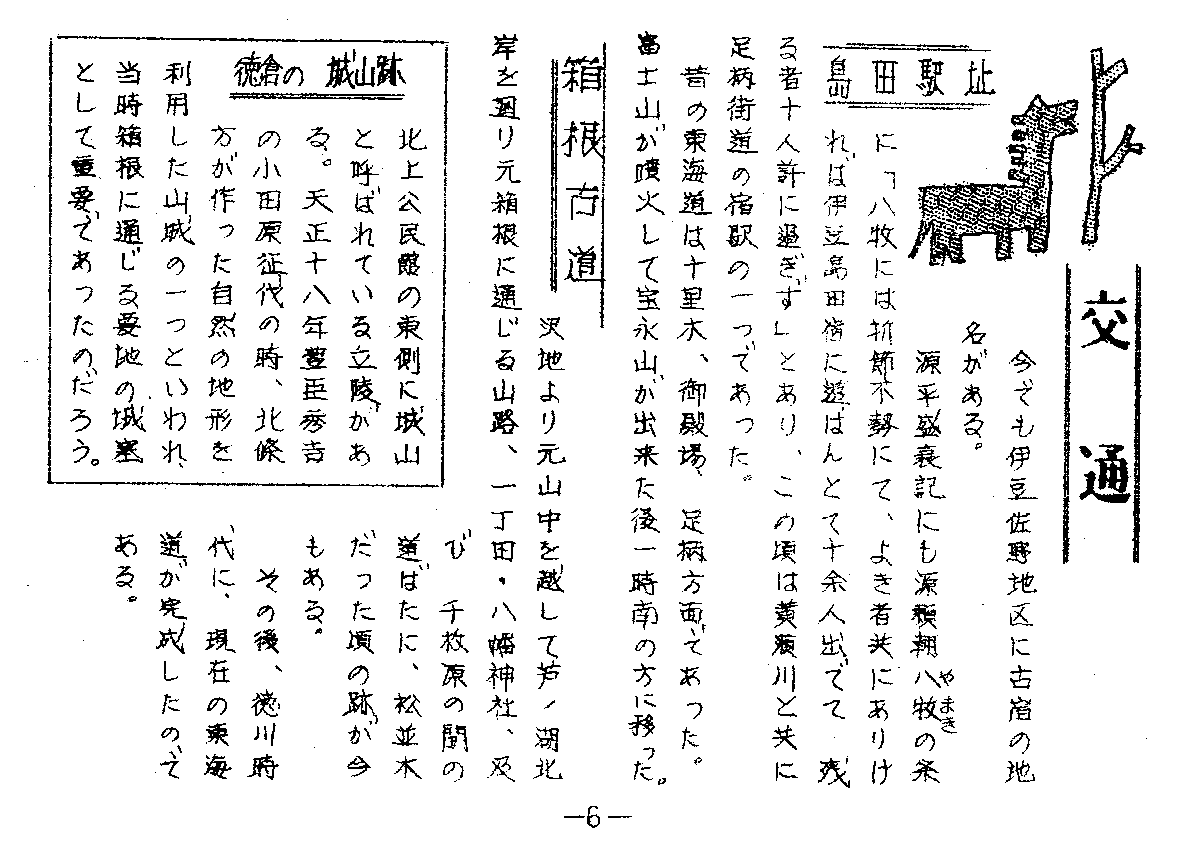 交通
島田駅址
今でも伊豆佐野地区に古宿の地
名がある。
源平盛衰記にも源頼朝八牧の条
やまき
に「八牧には折節不勢にて、よき者共にありけ
れば伊豆島田宿に遊ばんとて十余人出でて残
る者十人許に過ぎず」とあり、この頃は黄瀬川と共に
足柄街道の宿駅の一つであった。
昔の東海道は十里木、御殿場、足柄方面であった。
富士山が噴火して宝永山が出来た後一時南の方に移った。
箱根古道
沢地より元山中を越して芦ノ湖北
岸を廻り元箱根に通じる山路、一丁田・八幡神社、及
び千枚原の間の
道ばたに、松並木
だった頃の跡が今
もある。
その後、徳川時
代に、現在の東海
道が完成したので
ある。
徳倉の城山跡
北上公民館の東側に城山
と呼ばれている立陵があ
る。天正十八年豊臣秀吉
の小田原征代の時、北條
方が作った自然の地形を
利用した山城の一つといわれ、
当時箱根に通じる要地の城塞
として重要であったのだろう。
—6—